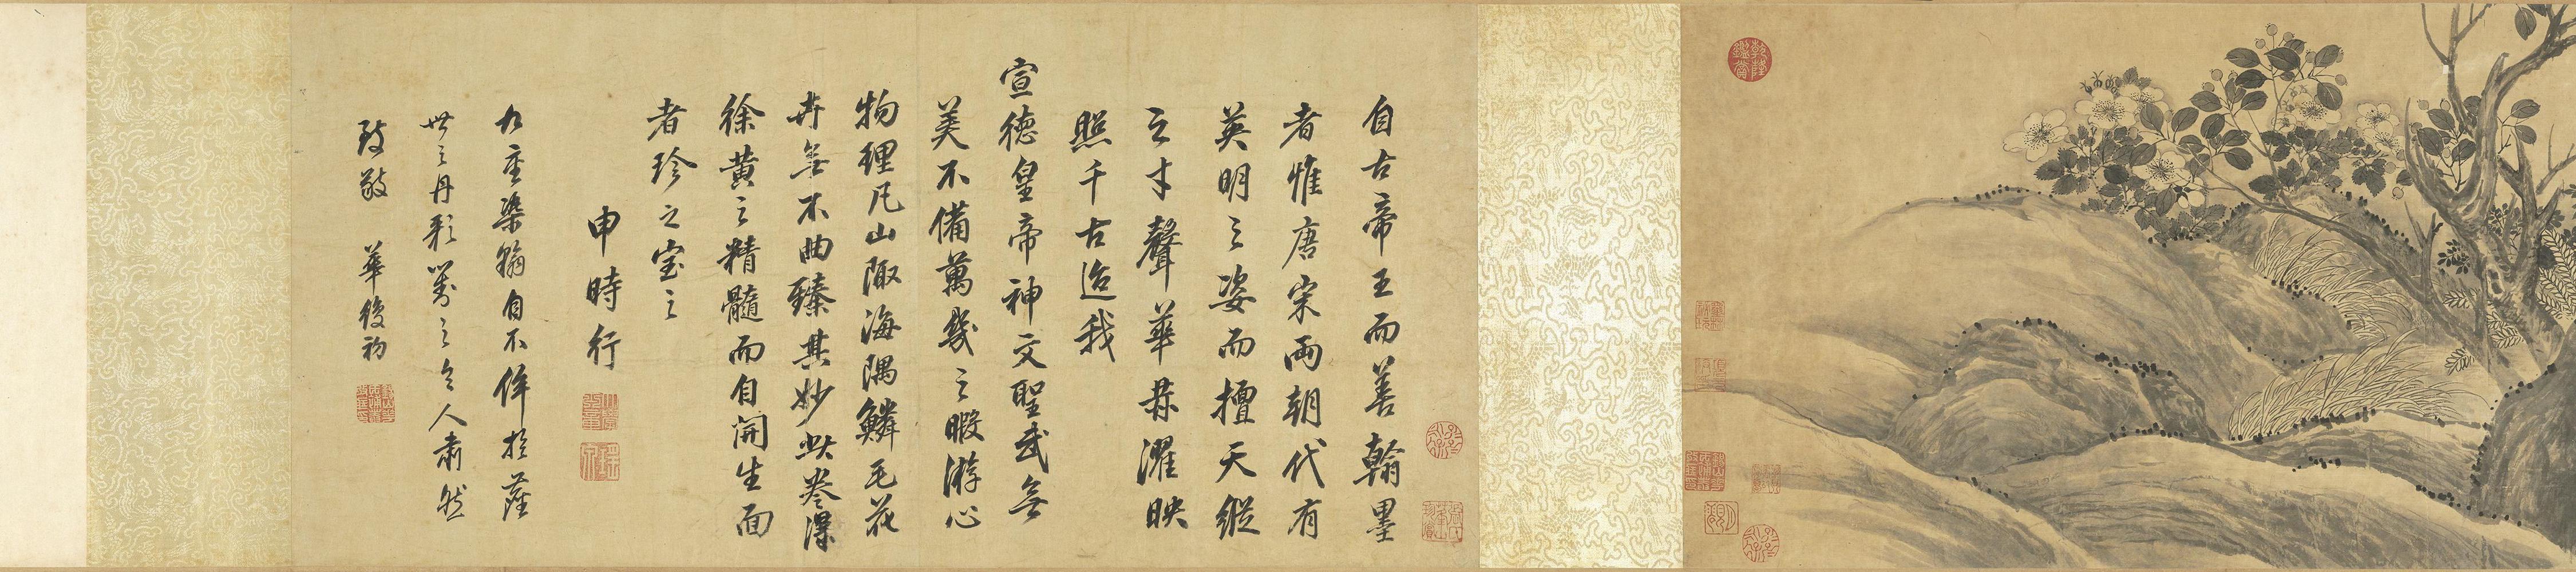 自古帝王而善翰墨
者惟唐宋兩朝代有
英明之姿而擅天縱
之才聲華昜濯映
照千古迨我
宣德皇帝神文聖武無
美不備萬幾之暇游心
物理凡山陬海隅鱗毛花
卉無不曲臻其妙此卷深
徐黃之精髓而自開生面
者珍之寶之
申時行
九重染翰自不侔於薩
世之丹彩對之令人肅然
致敬 華復初
乾隆鑑賞